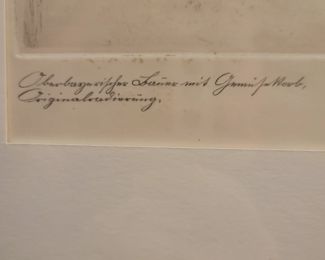 Oberbayerischer Bauer mit Gemüsekorb,
Originalradierung.